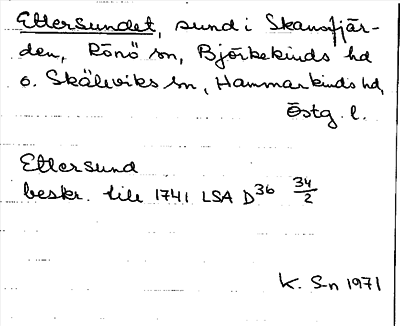 Ettersundet, sund i Skansfjär-
den, Rönö sn, Björkekinds hd
o. Skällviks sn, Hammarkinds hd,
Östg. l.
Ettersund
beskr. till 1741 LSA D36 34/2
K. S-n 1971